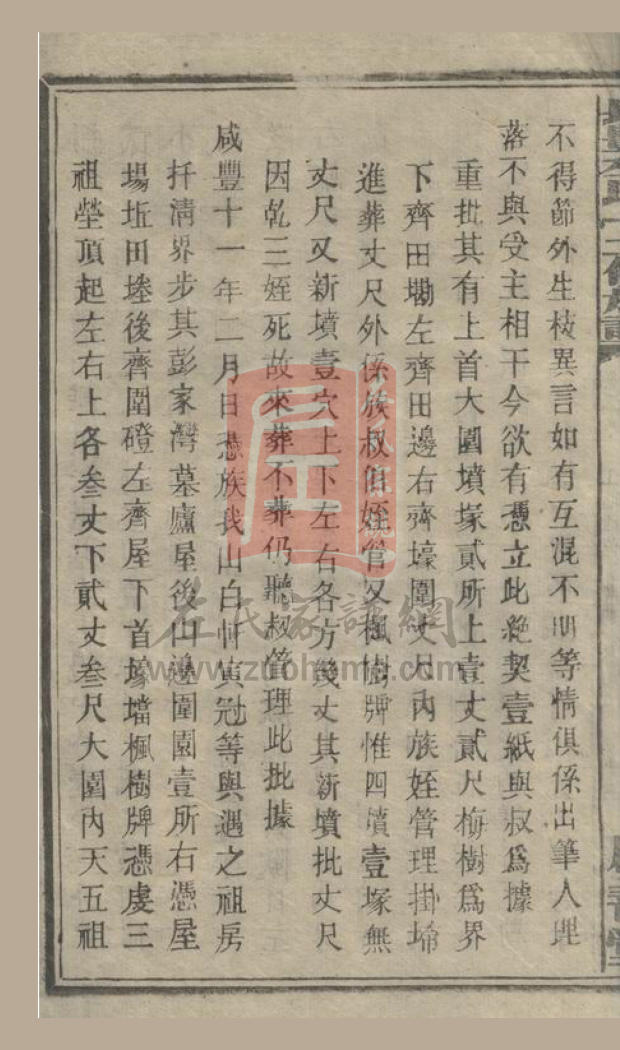 不得節外生枝異言如有互混不明等情俱係出筆人理
落不與受主相干今欲有憑立此絶契壹紙與叔爲據
重批其有上首大圍墳塚貳所上壹丈貳尺梅樹爲界
下齊田墈左齊田邊右齊壕圍丈尺內族姪管理掛埽
進葬丈尺外係族叔伯姪管又楓樹牌惟四墳壹塚無
丈尺又新墳壹穴上下左右各方幾丈其新墳批丈尺
因乾三姪死故來葬不葬仍聽叔管理此批據
咸豐十一年二月日憑族我山白恒寅冠等與遇之祖房
扦淸界步其彭家灣墓廬屋後山邊圍園壹所右憑屋
場坵田塝後齊圍磴左齊屋下首壕壋楓樹牌憑虔三
祖塋頂起左右上各叁丈下貳丈叁尺大圍內天五祖
左氏家譜網
www.zuohome.com